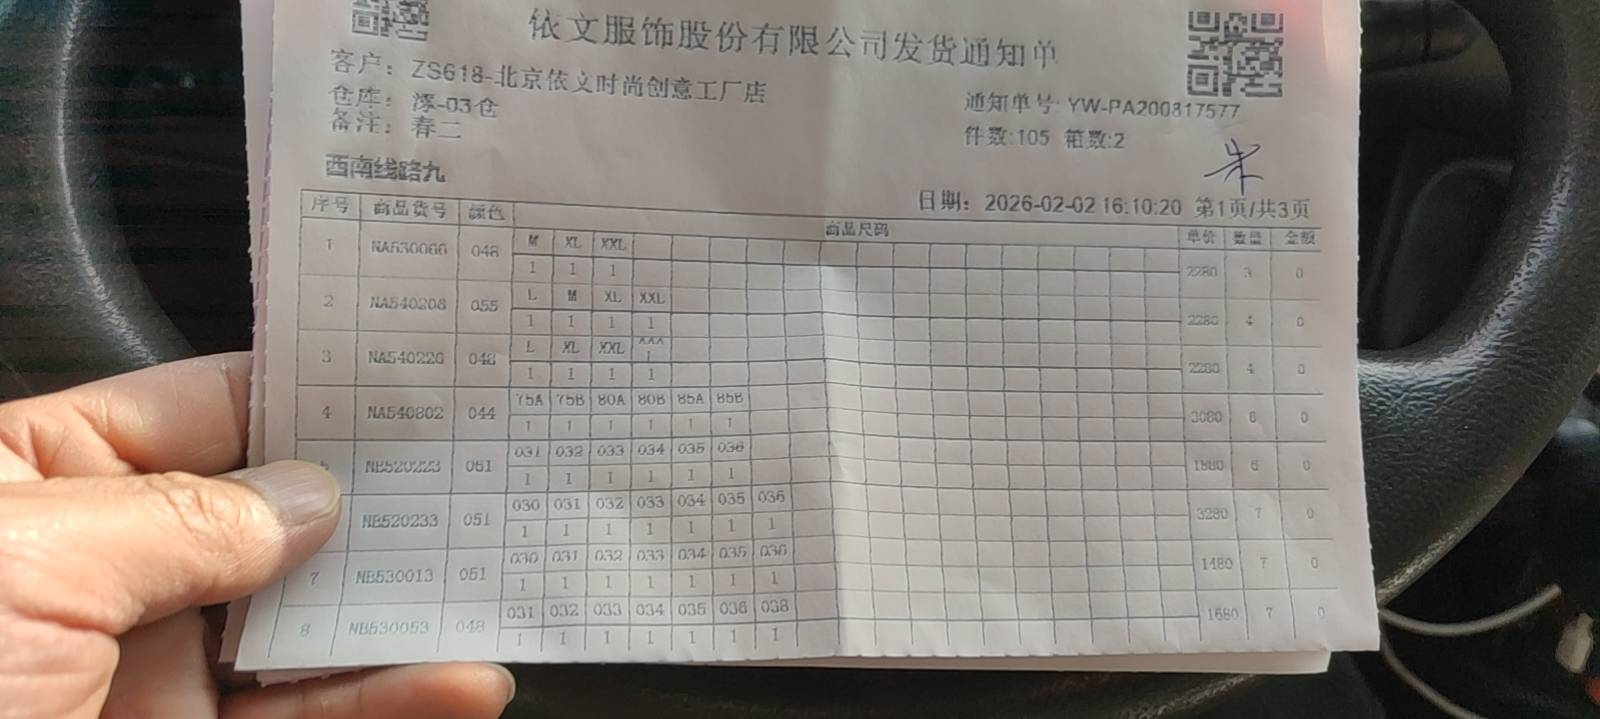 依文服饰股份有限公司发货通知单
客户：ZS618-北京依文时尚创意工厂店
仓库：涿-03仓
通知单号:YW-PA200817577
备注：春二
件数:105 箱数:2
朱
西南线路九
日期：2026-02-02 16:10:20 第1页/共3页
序号 商品货号 颜色 商品尺码 单价 数量 金额
M XL XXL
1 NA530066 048 2280 3 0
1 1 1
L M XL XXL
2 NA540208 055 2280 4 0
1 1 1 1
L XL XXL
3 NA540226 048 2280 4 0
1 1 1 1
75A 75B 80A 80B 85A 85B
4 NA540802 044 3080 6 0
1 1 1 1 1 1
031 032 033 034 035 036
NB520223 051 1880 6 0
1 1 1 1 1 1
030 031 032 033 034 035 036
NB520233 051 3280 7 0
1 1 1 1 1 1 1
030 031 032 033 034 035 036
7 NB530013 051 1480 7 0
1 1 1 1 1 1 1
031 032 033 034 035 036 038
8 NB530053 048 1680 7 0
1 1 1 1 1 1 1